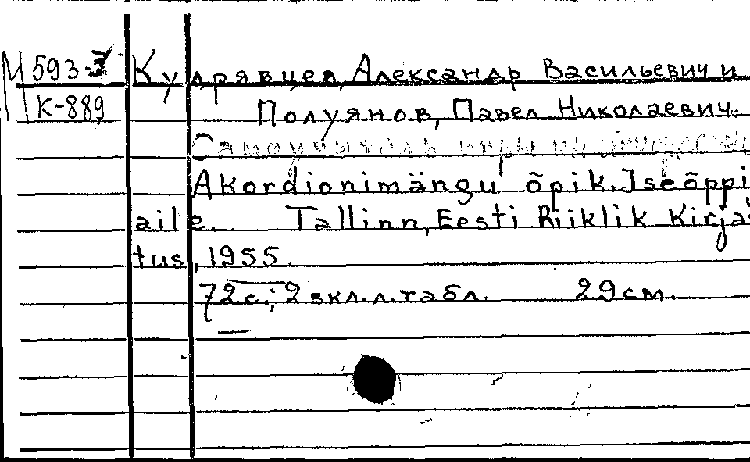 М 593-3 Кудрявцев, Александр Васильевич и
К-889 Полуянов, Павел Николаевич.
Самоучитель игры на
Akordionimängu õpik. Iseõppi
aile. Tallinn, Eesti Riiklik Kirjas
tus, 1955.
72 с.; 2 вкл. л. табл. 29 см.